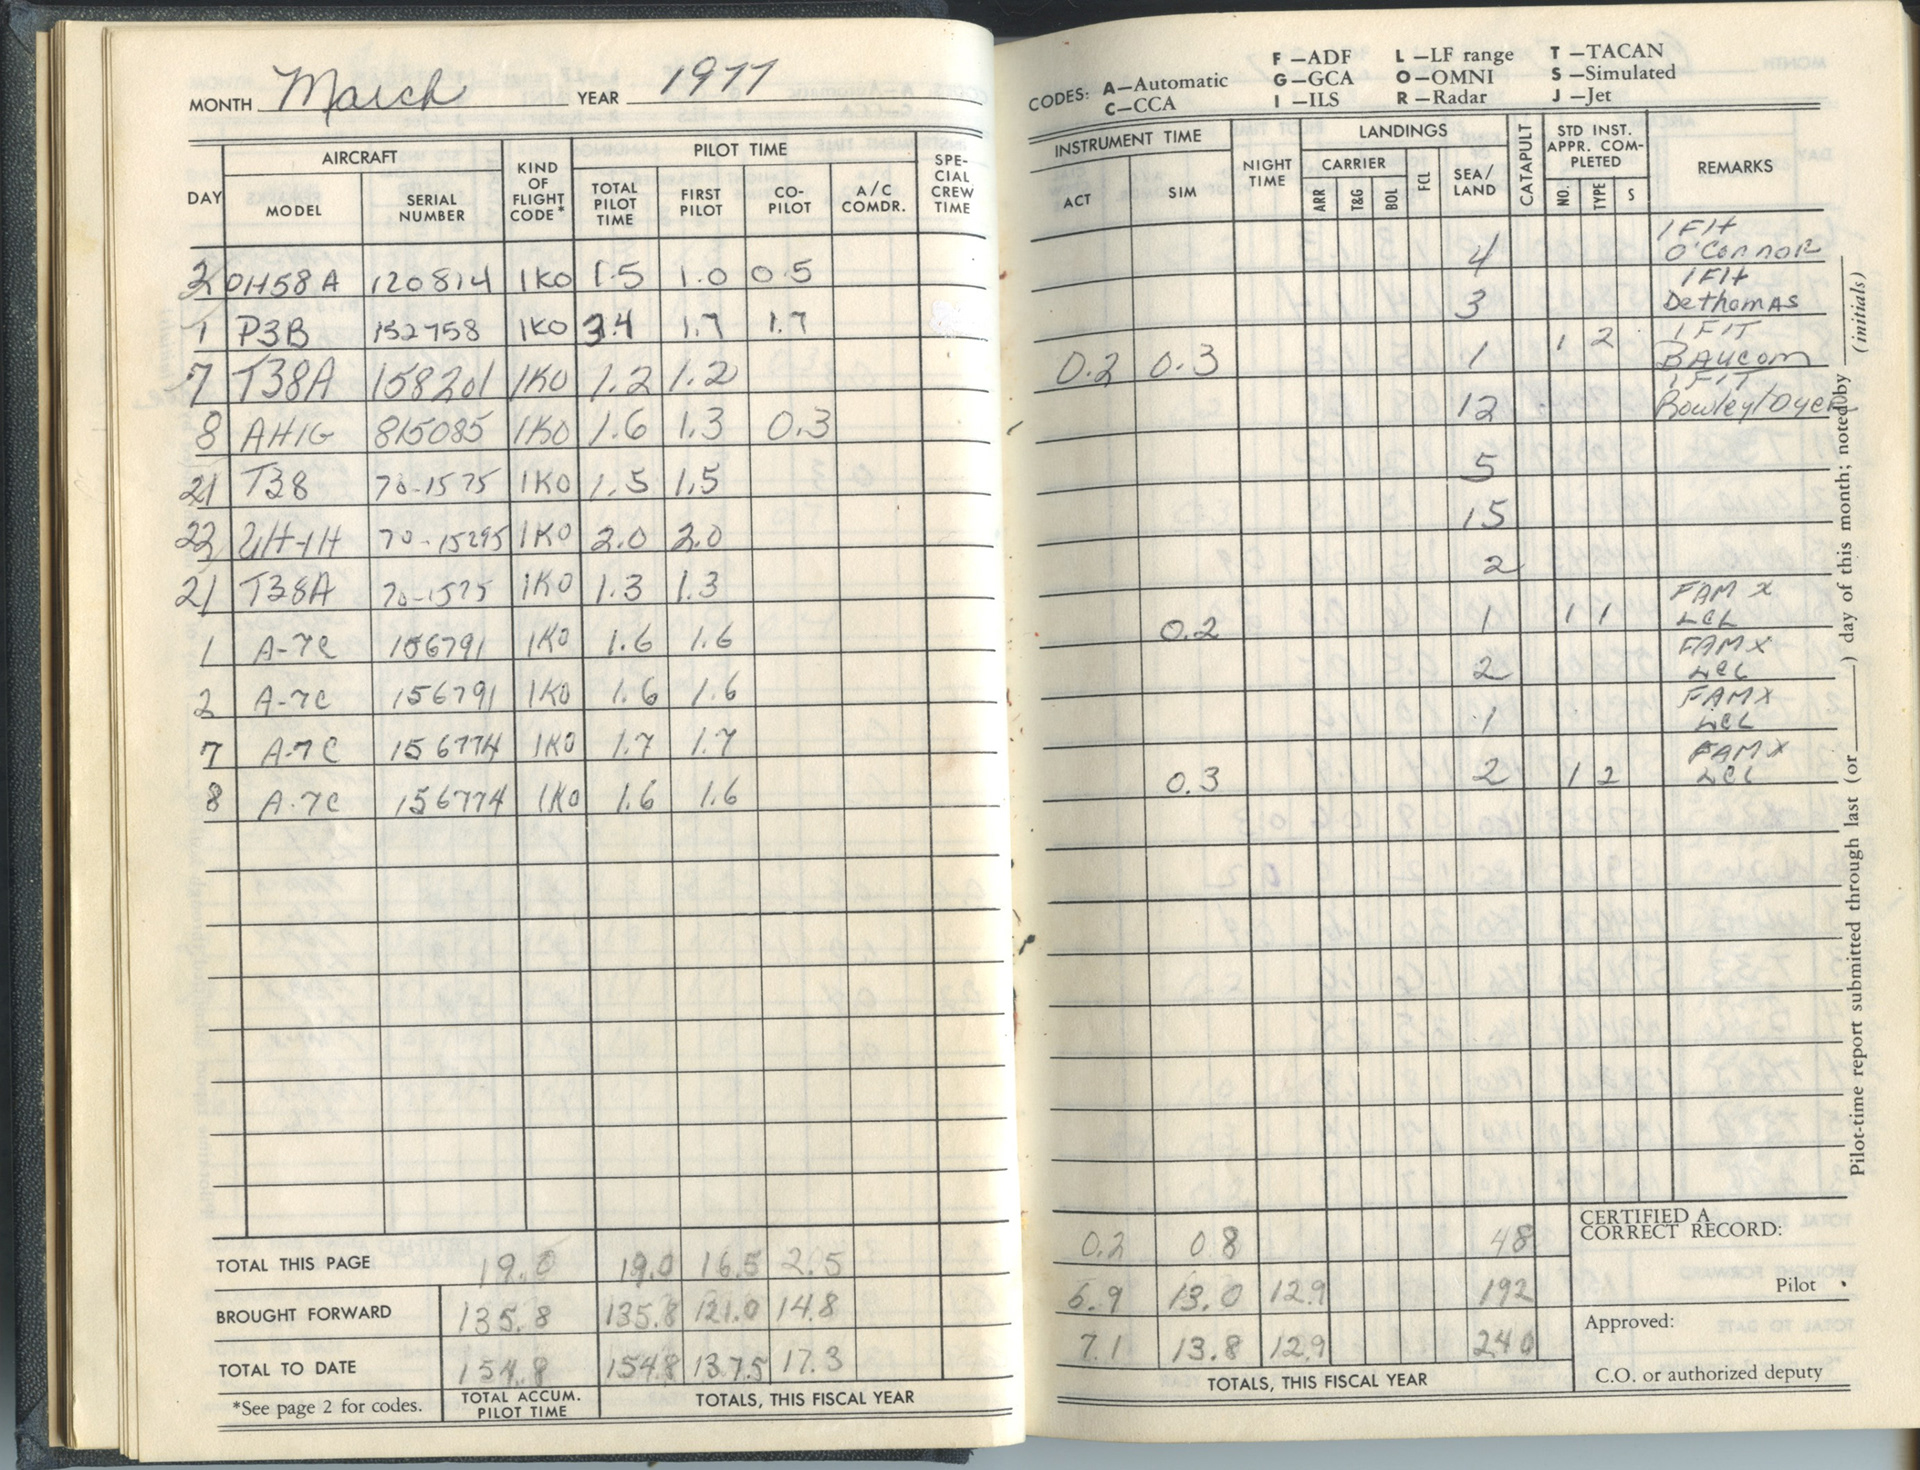 MONTH March YEAR 1977
DAY AIRCRAFT KIND OF FLIGHT CODE* PILOT TIME SPE-CIAL CREW TIME
MODEL SERIAL NUMBER TOTAL PILOT TIME FIRST PILOT CO-PILOT A/C COMDR.
2 OH58A 120814 1KO 1.5 1.0 0.5
1 P3B 152758 1KO 3.4 1.7 1.7
7 T38A 158201 1KO 1.2 1.2
8 AH1G 815085 1KO 1.6 1.3 0.3
21 T38 70-1575 1KO 1.5 1.5
22 UH-1H 70-15295 1KO 2.0 2.0
21 T38A 70-1575 1KO 1.3 1.3
1 A-7C 156791 1KO 1.6 1.6
2 A-7C 156791 1KO 1.6 1.6
7 A-7C 156774 1KO 1.7 1.7
8 A-7C 156774 1KO 1.6 1.6
TOTAL THIS PAGE 19.0 19.0 16.5 2.5
BROUGHT FORWARD 135.8 135.8 121.0 14.8
TOTAL TO DATE 154.8 154.8 137.5 17.3
*See page 2 for codes. TOTAL ACCUM. PILOT TIME TOTALS, THIS FISCAL YEAR
CODES: A—Automatic F—ADF L—LF range T—TACAN
G—GCA O—OMNI S—Simulated
C—CCA I—ILS R—Radar J—Jet
INSTRUMENT TIME NIGHT TIME LANDINGS CATAPULT STD INST. APPR. COM-PLETED REMARKS
ACT SIM CARRIER ARR T&G BOL FCL SEA/LAND NO. TYPE S
4 1 FIt O'Connor
3 1 FIt Dethomas
0.2 0.3 1 1 2 1 FIT BAucom
12 1 FIT Bowley/Dyer
5
15
2
0.2 1 1 1 FAM X LCL
2 FAM X LCL
1 FAM X LCL
0.3 2 1 2 FAM X LCL
0.2 0.8 48
6.9 13.0 12.9 192
7.1 13.8 12.9 240
TOTALS, THIS FISCAL YEAR
CERTIFIED A CORRECT RECORD:
Pilot
Approved:
C.O. or authorized deputy
Pilot-time report submitted through last (or ____) day of this month; noted by ____ (initials)